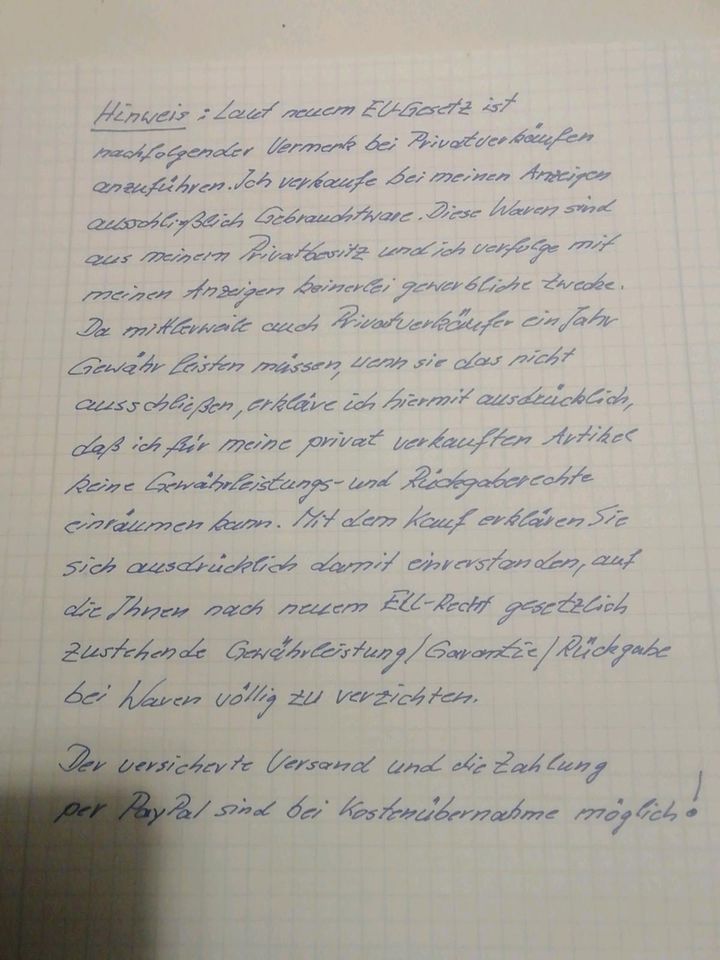 Hinweis : Laut neuem EU-Gesetz ist
nachfolgender Vermerk bei Privatverkäufen
anzuführen. Ich verkaufe bei meinen Anzeigen
ausschließlich Gebrauchtware. Diese Waren sind
aus meinem Privatbesitz und ich verfolge mit
meinen Anzeigen keinerlei gewerbliche Zwecke.
Da mittlerweile auch Privatverkäufer ein Jahr
Gewähr leisten müssen, wenn sie das nicht
ausschließen, erkläre ich hiermit ausdrücklich,
daß ich für meine privat verkauften Artikel
keine Gewährleistungs- und Rückgaberechte
einräumen kann. Mit dem Kauf erklären Sie
sich ausdrücklich damit einverstanden, auf
die Ihnen nach neuem EU-Recht gesetzlich
zustehende Gewährleistung/Garantie/Rückgabe
bei Waren völlig zu verzichten.
Der versicherte Versand und die Zahlung
per PayPal sind bei Kostenübernahme möglich!